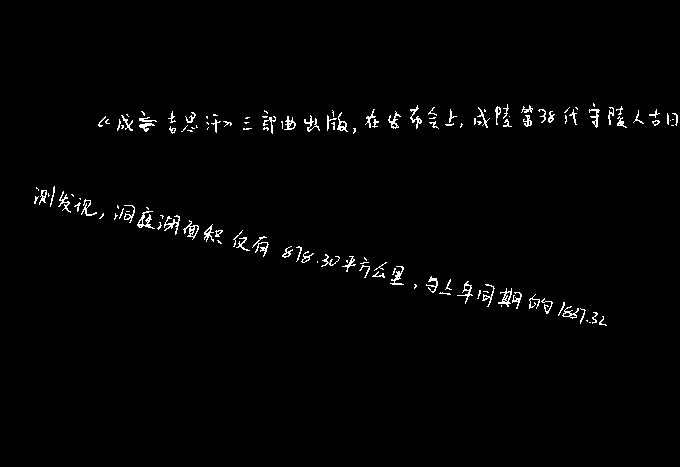 《成吉思汗》三部曲出版,在发布会上,成陵第38代守陵人古日
测发现,洞庭湖面积仅有878.30平方公里,与上年同期的1837.32